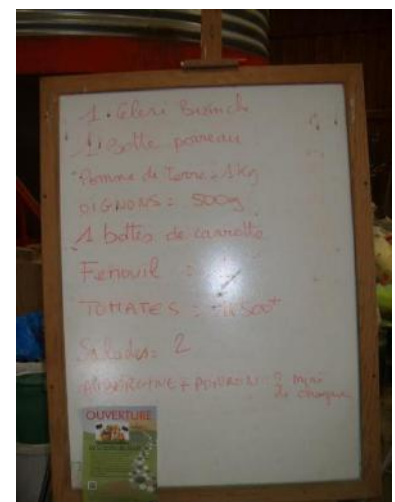 1. Céleri Branche
1 Botte poireau
Pomme de Terre : 1kg
OIGNONS : 500g
1 bottes de carrotte
Fenouil : 1
TOMATES : 1k500
Salades : 2
AUBERGINE + POIVRON : 2 mini
de chaque
OUVERTURE